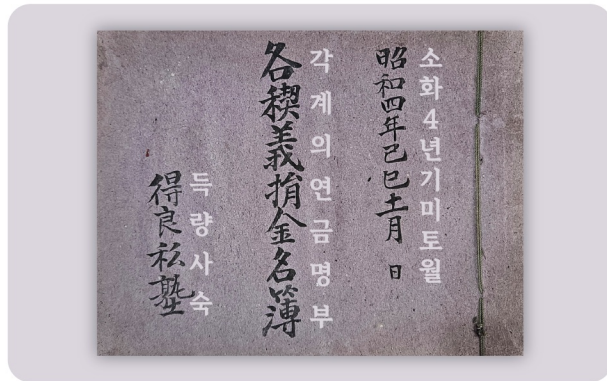 소화4년기미토월
昭和四年己巳土月 日
각계의연금명부
各稧義捐金名簿
득량사숙
得良私塾